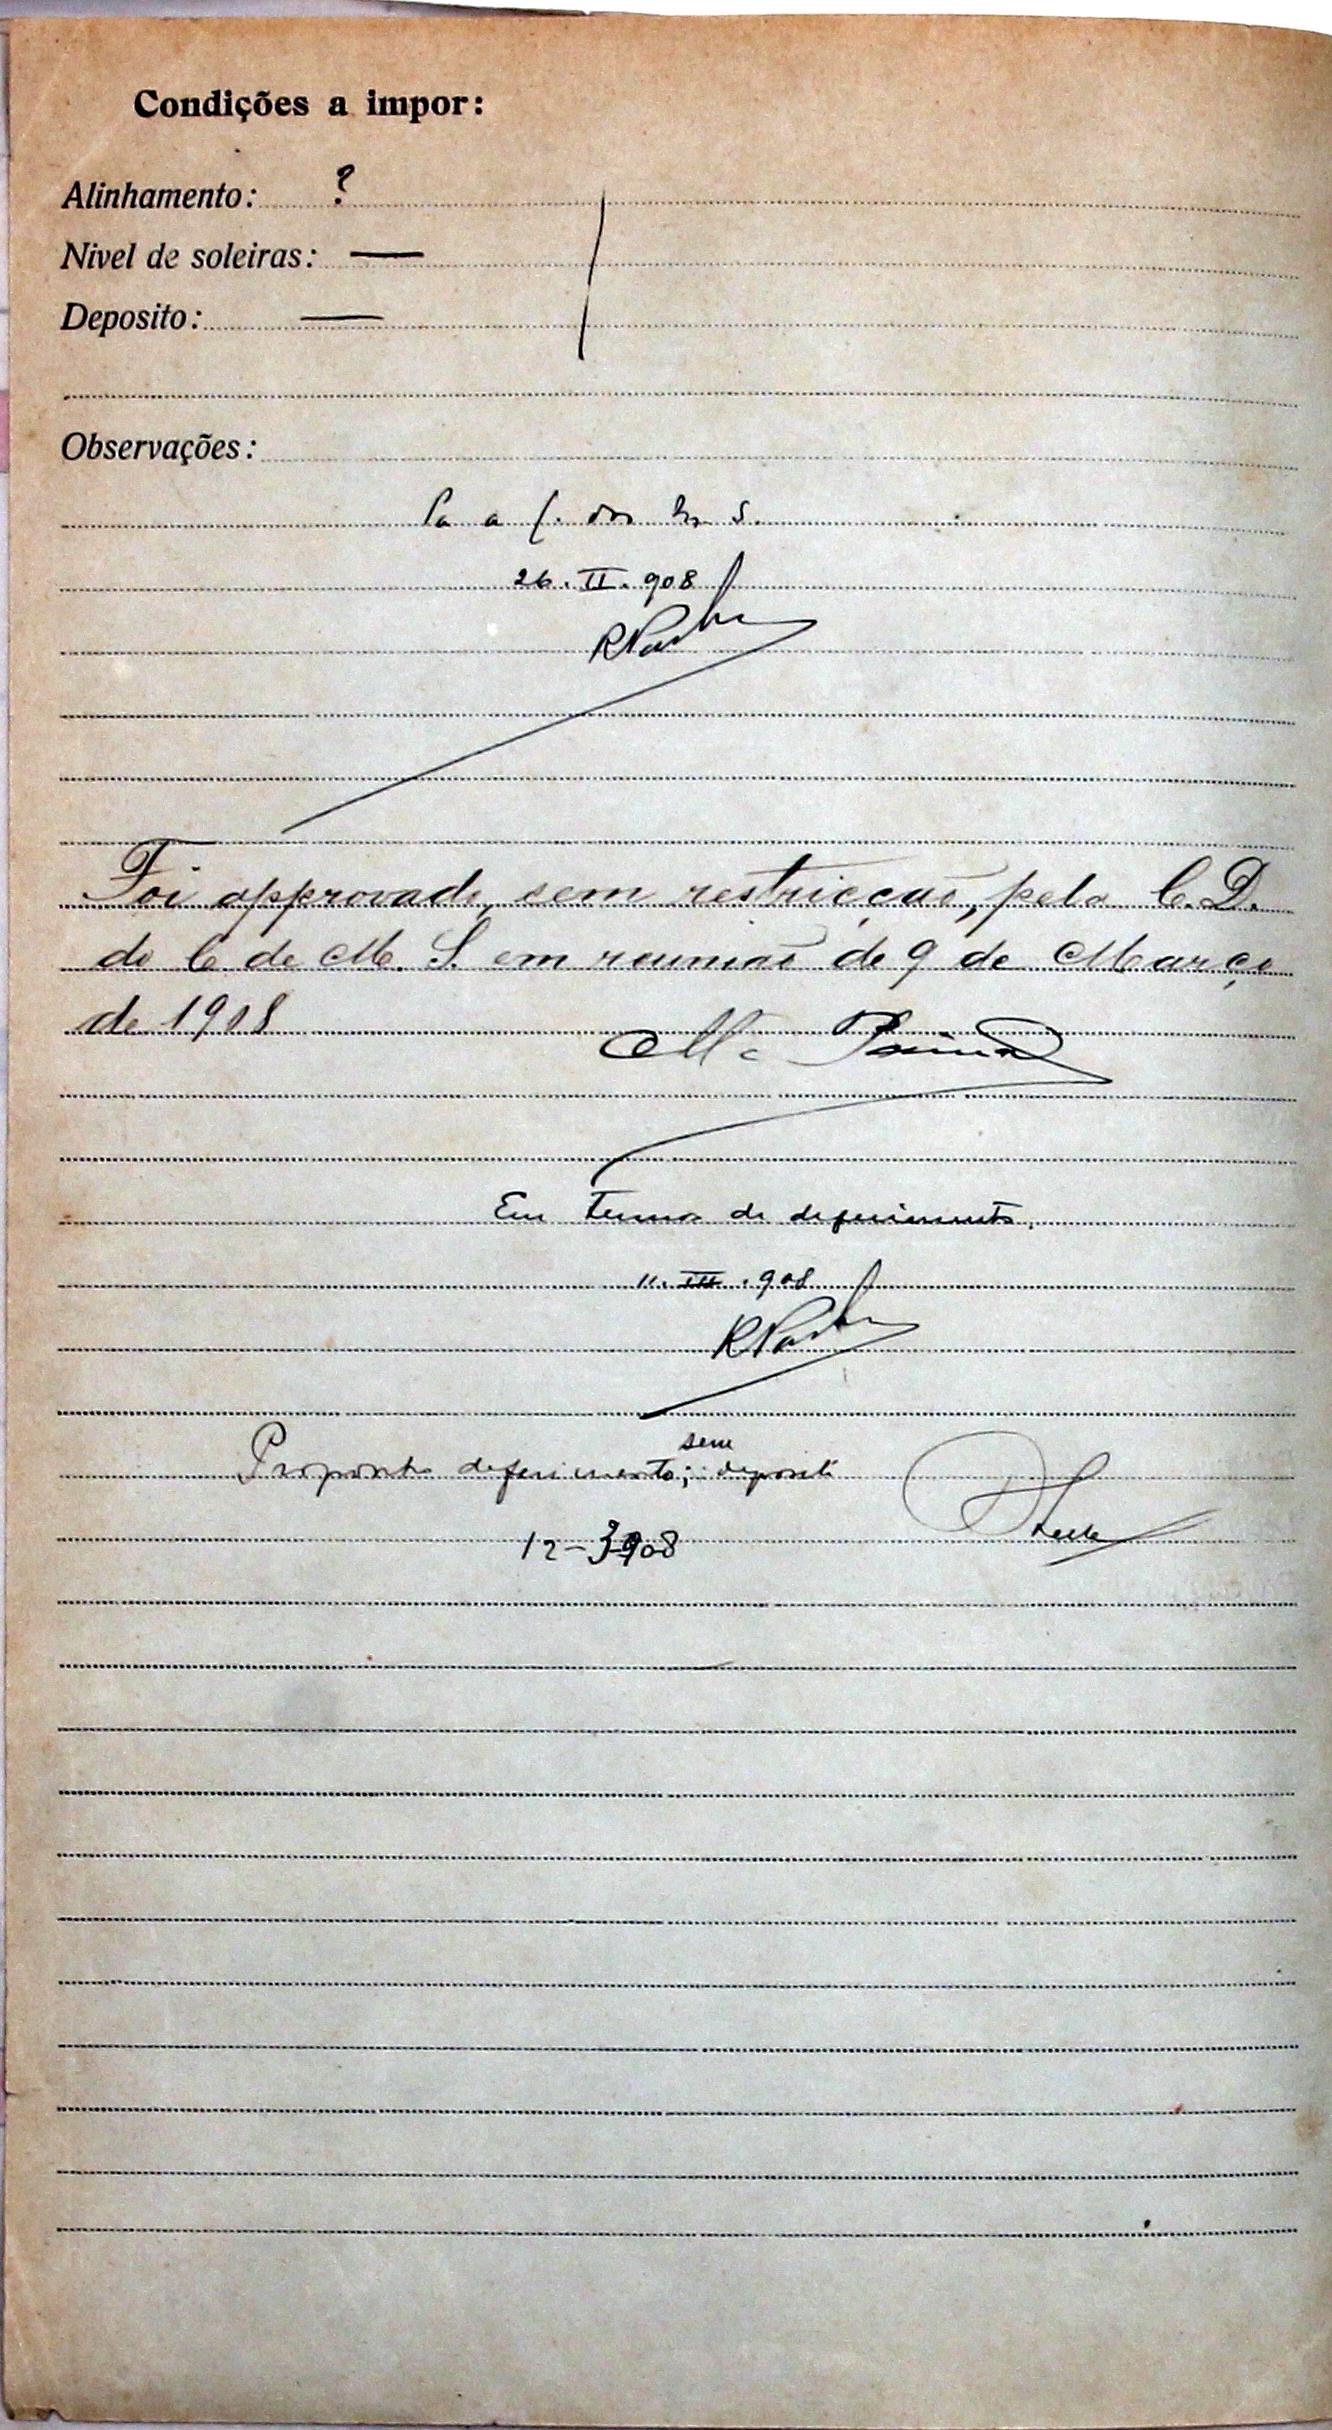 Condições a impor:
Alinhamento: ?
Nivel de soleiras: —
Deposito: —
Observações:
26. II. 908
Foi approvado, sem restricção, pela C. D.
do C de M. S. em reunião de 9 de Março
de 1908
Em termos de deferimento.
11. III. 908
Proponho deferimento; sem deposito
12-3-908